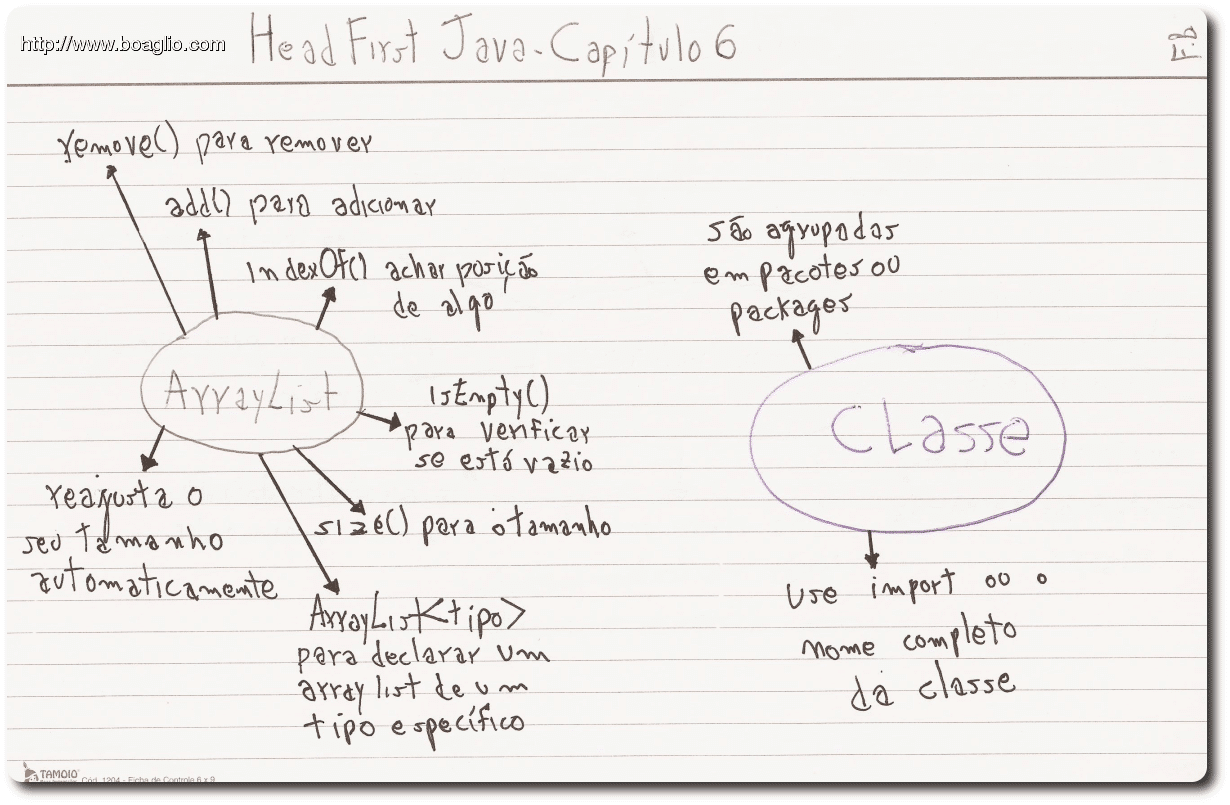 http://www.boaglio.com
Head First Java - Capítulo 6
FB
remove() para remover
add() para adicionar
IndexOf() achar posição
de algo
ArrayList
IsEmpty()
para verificar
se está vazio
reajusta o
seu tamanho
automaticamente
size() para o tamanho
ArrayList<tipo>
para declarar um
array list de um
tipo específico
são agrupadas
em pacotes ou
packages
CLasse
Use import ou o
nome completo
da classe
TAMOIO
Cód. 1204 - Ficha de Controle 6 x 9